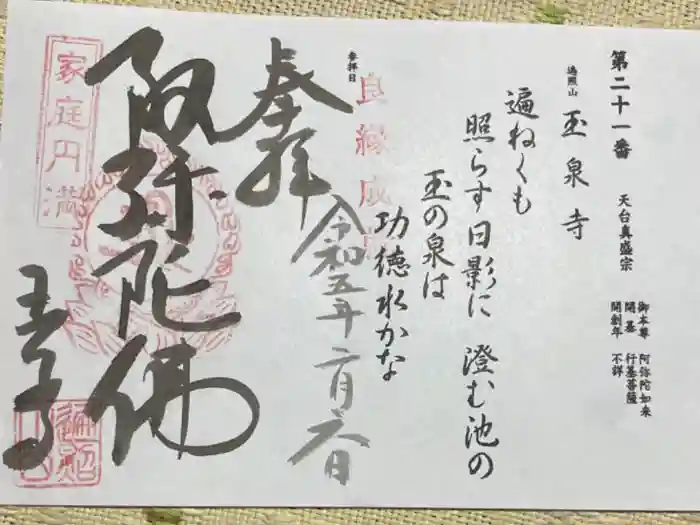 第二十一番
天台真盛宗
御本尊 阿弥陀如来
開基 行基菩薩
開創年 不詳
遍照山
玉泉寺
遍ねくも
照らす日影に 澄む池の
玉の泉は
功徳水かな
参拝日
良縁成
奉拝
令和五年二月六日
阿弥陀佛
家庭円満
玉泉寺